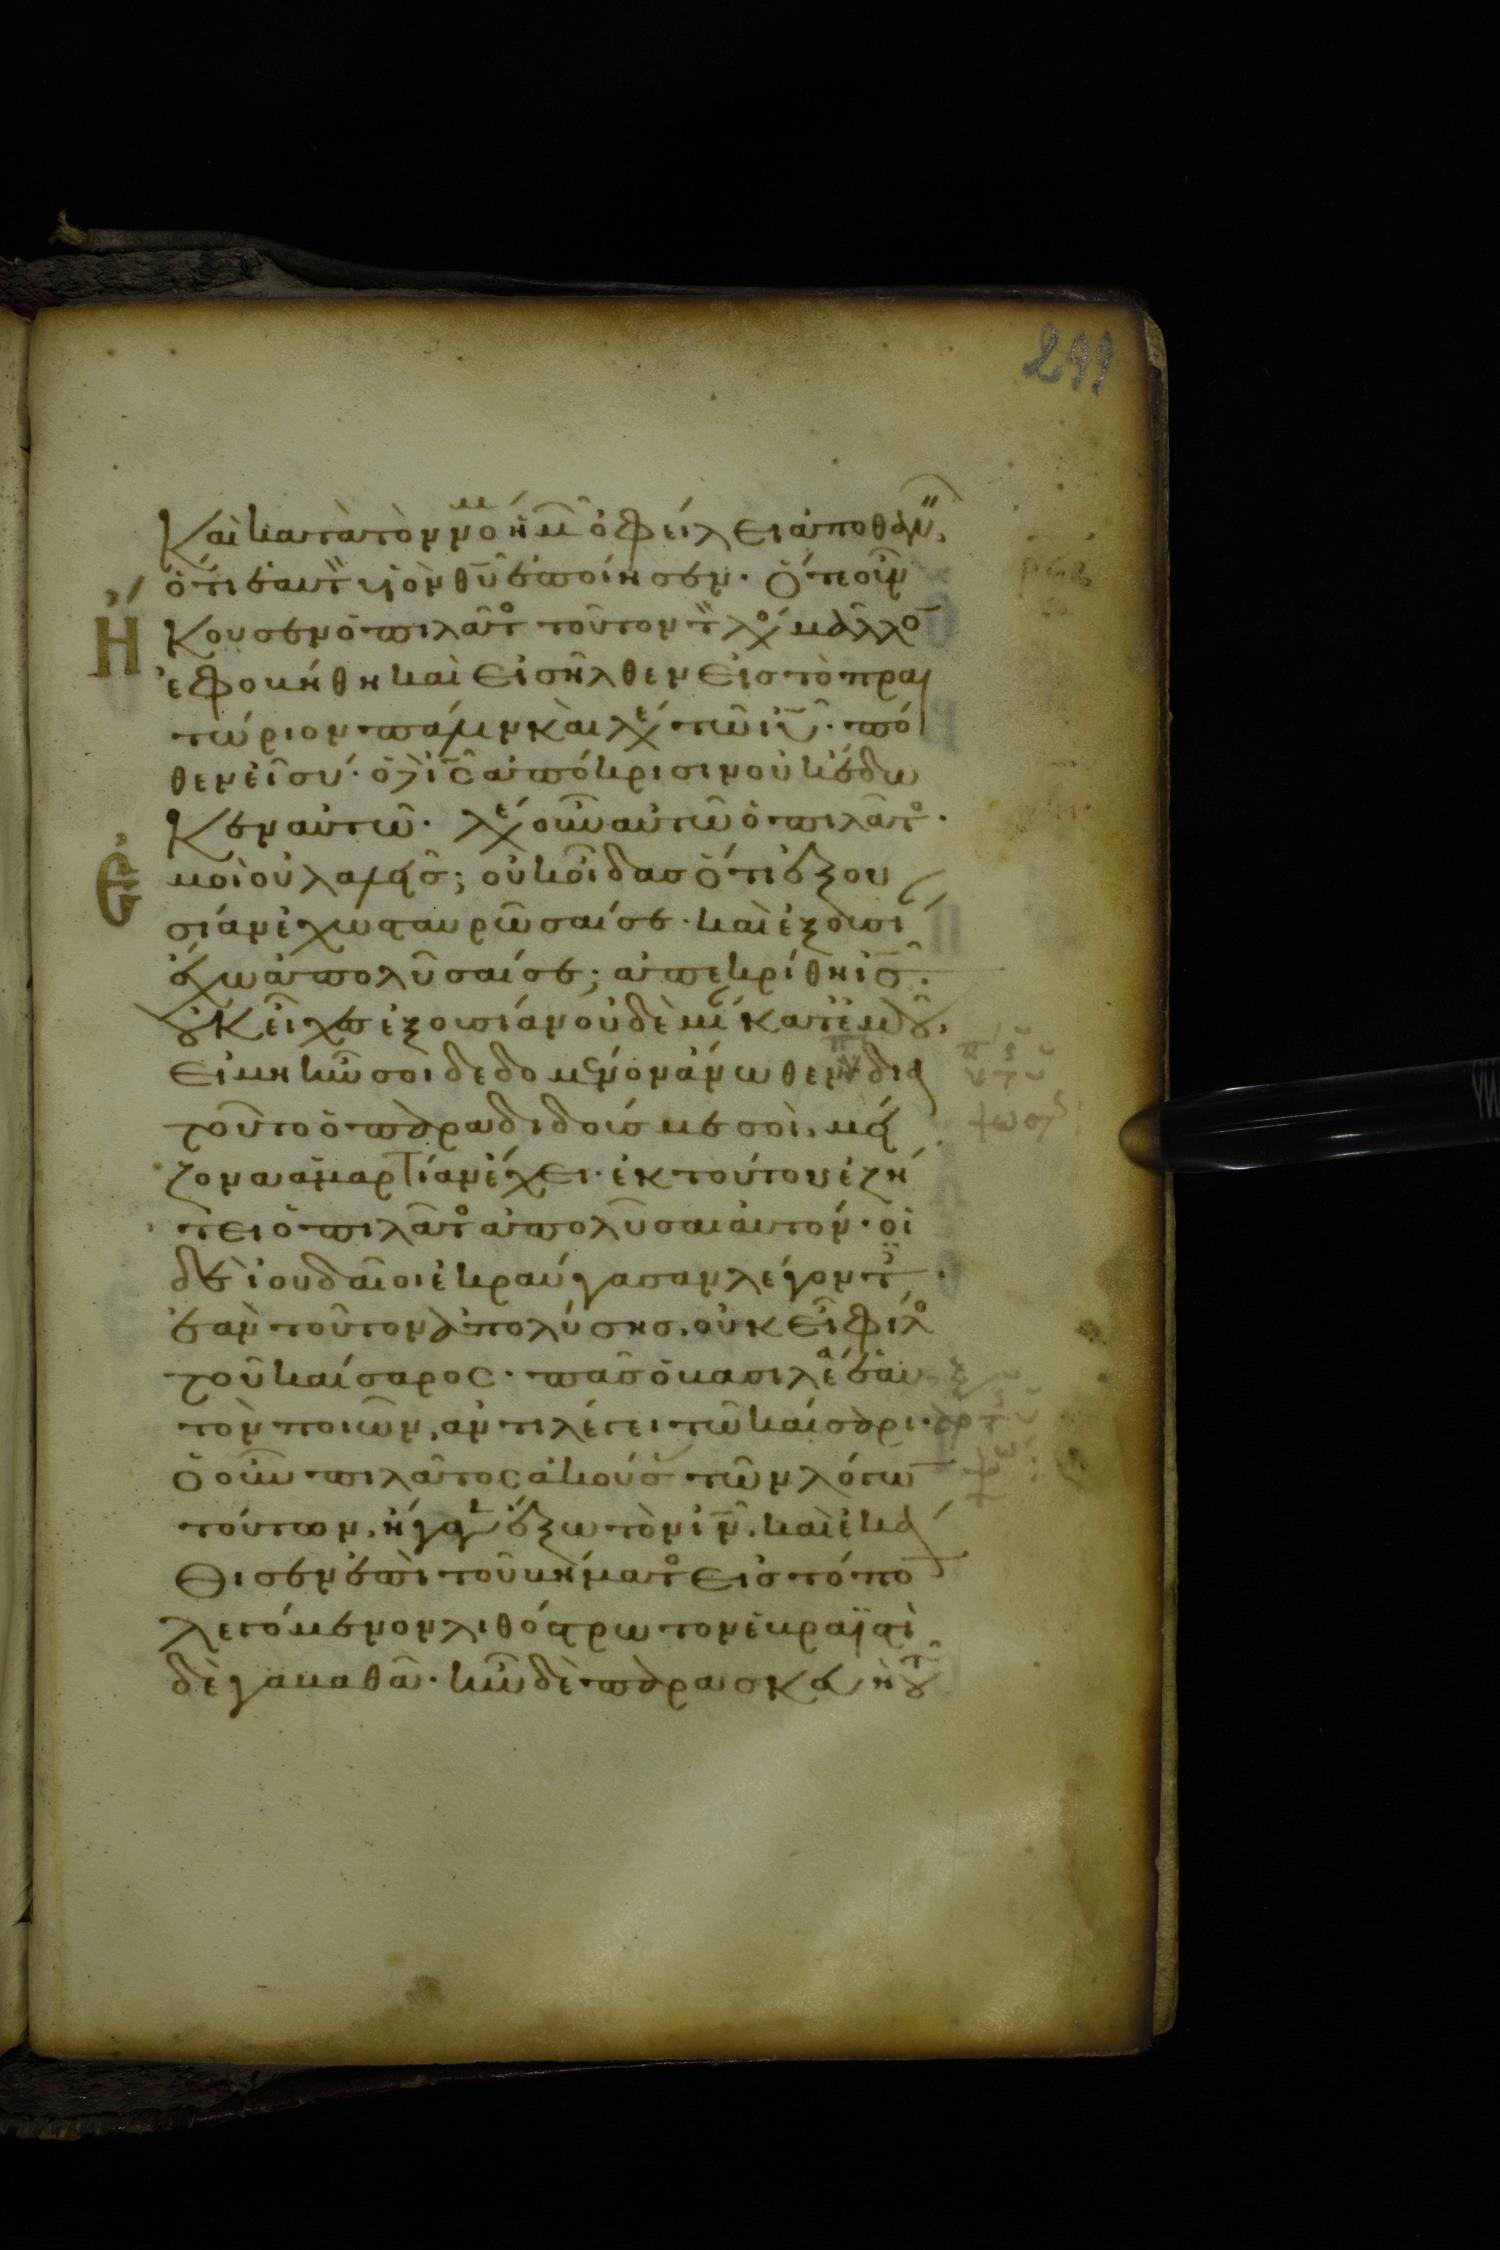 299
Καὶ κατὰ τὸν νμο ἡμ ὀφείλει ἀποθαν,
ὅτι ἑαυτ υἱὸν θῦ ἐποίησεν. Ὅτε οὖν
Ἤκουσεν ὁ πιλατ τοῦτον τ λο μᾶλλο
ἐφοβήθη καὶ εἰσῆλθεν εἰς τὸ πραι
τώριον πάλιν καὶ λε τῶ ιυ. πό
θεν εἶ σύ. ὁ δὲ ις ἀπόκρισιν οὐκ ἔδω
κεν αὐτῶ. λε οὖν αὐτῶ ὁ πιλατ.
Ἐμοὶ οὐ λαλεῖς; οὐκ οἶδας ὅτι ἐξου
σίαν ἔχω σταυρῶσαί σε. καὶ ἐξουσί
ἔχω ἀπολῦσαί σε; ἀπεκρίθη ις.
οὐκ εἶχες ἐξουσίαν οὐδεμί κατ ἐμοῦ,
εἰ μὴ ἦν σοι δεδομένον ἄνωθεν. δια
τοῦτο ὁ παραδιδούς με σοὶ, μεί
ζονα ἁμαρτίαν ἔχει. ἐκ τούτου ἐζή
τει ὁ πιλατ ἀπολῦσαι αὐτόν. οἱ
δὲ ἰουδαῖοι ἐκραύγασαν λέγοντ.
ἐὰν τοῦτον ἀπολύσης, οὐκ εἶ φίλ
τοῦ καίσαρος. πᾶς ὁ βασιλέα ἑαυ
τὸν ποιῶν, ἀντιλέγει τῶ καίσαρι.
ὁ οὖν πιλᾶτος ἀκούσ τῶν λόγω
τούτων, ἤγαγ ἔξω τὸν ιν, καὶ ἐκά
θισεν ἐπὶ τοῦ βήματ εἰς τόπο
λεγόμενον λιθόστρωτον ἑβραϊστὶ
δὲ γαβαθᾶ. ἦν δὲ παρασκευὴ τοῦ